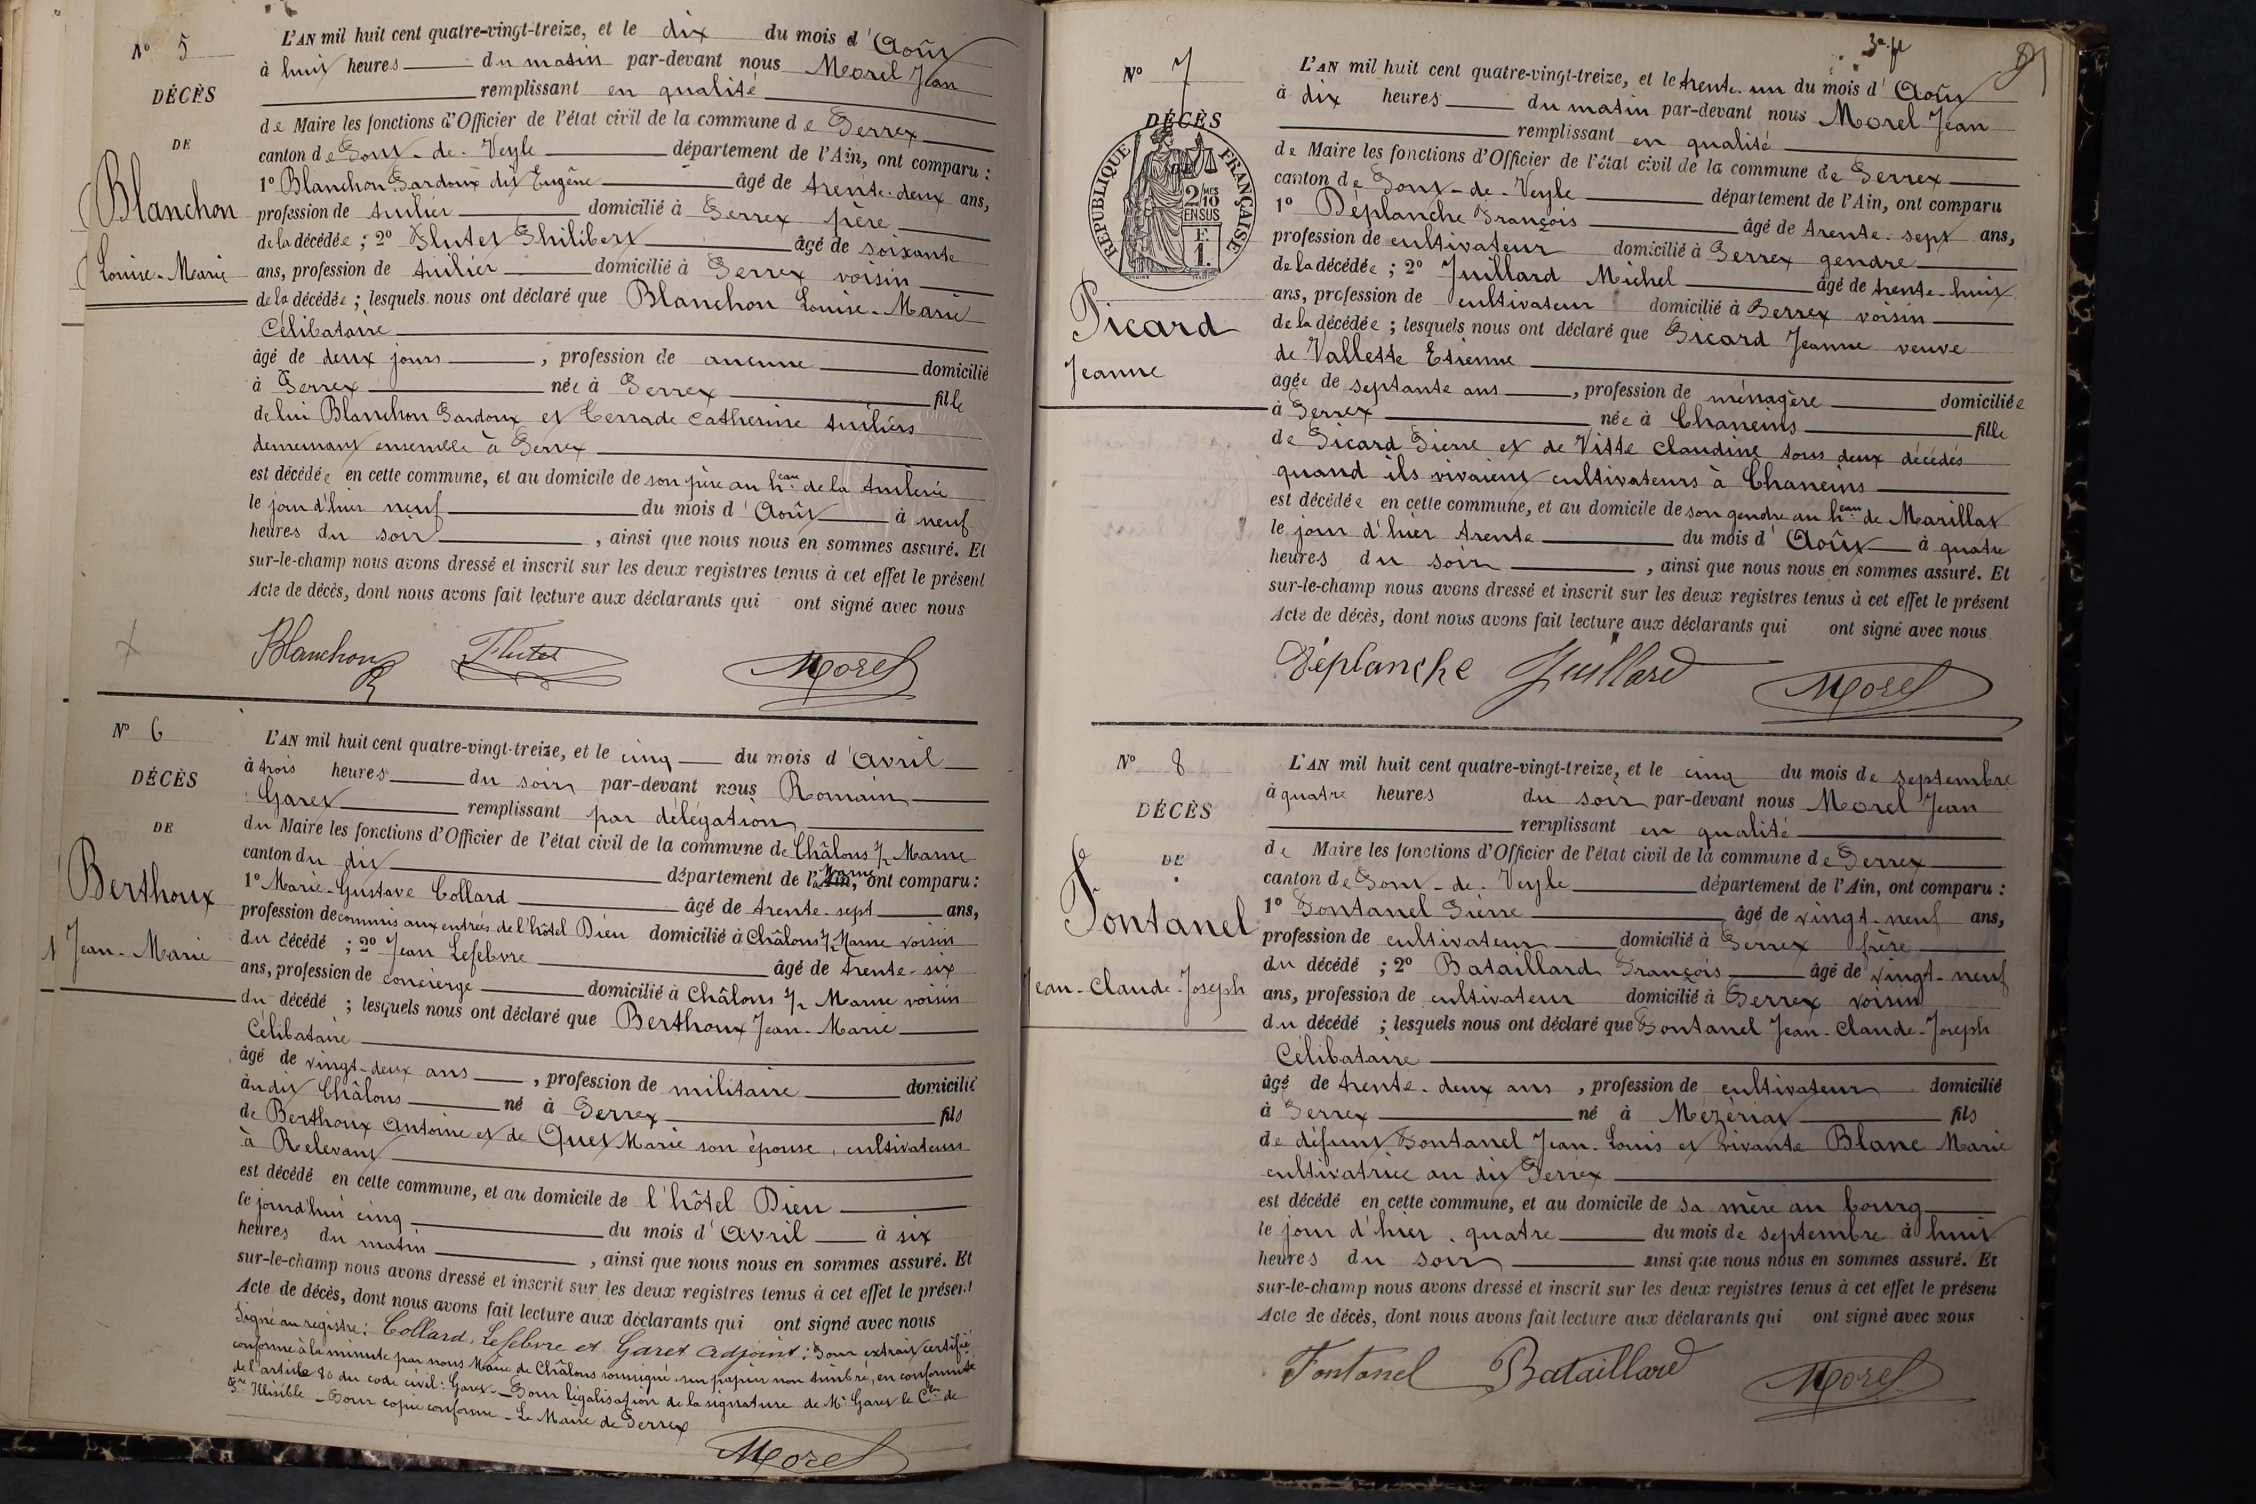 N° 5
DÉCÈS
DE
Blanchon
Louise-Marie
L'AN mil huit cent quatre-vingt-treize, et le dix du mois d'Août
à huit heures du matin par-devant nous Morel Jean
remplissant en qualité
de Maire les fonctions d'Officier de l'état civil de la commune de Perrex
canton de Pont-de-Veyle département de l'Ain, ont comparu :
1° Blanchon Pardoux dit Eugène âgé de trente-deux ans,
profession de tuilier domicilié à Perrex père
de la décédée ; 2° Flutet Philibert âgé de soixante
ans, profession de tuilier domicilié à Perrex voisin
de la décédée ; lesquels nous ont déclaré que Blanchon Louise-Marie
Célibataire
âgé de deux jours , profession de aucune domicilié
à Perrex née à Perrex fille
de lui Blanchon Pardoux et Terrade Catherine tuiliers
demeurant ensemble à Perrex
est décédée en cette commune, et au domicile de son père au heau de la tuilerie
le jour d'hier neuf du mois d'Août à neuf
heures du soir , ainsi que nous nous en sommes assuré. Et
sur-le-champ nous avons dressé et inscrit sur les deux registres tenus à cet effet le présent
Acte de décès, dont nous avons fait lecture aux déclarants qui ont signé avec nous
Blanchon Flutet Morel
N° 6
DÉCÈS
DE
Berthoux
Jean-Marie
L'AN mil huit cent quatre-vingt-treize, et le cinq du mois d'Avril
à trois heures du soir par-devant nous Romain
Garet remplissant par délégation
du Maire les fonctions d'Officier de l'état civil de la commune de Châlons s/ Marne
canton du dit département de la Marne, ont comparu :
1° Marie-Gustave Collard âgé de trente-sept ans,
profession de commis aux entrées de l'hôtel Dieu domicilié à Châlons s/ Marne voisin
du décédé ; 2° Jean Lefebvre âgé de trente-six
ans, profession de concierge domicilié à Châlons s/ Marne voisin
du décédé ; lesquels nous ont déclaré que Berthoux Jean-Marie
Célibataire
âgé de vingt-deux ans , profession de militaire domicilié
au dit Châlons né à Perrex fils
de Berthoux Antoine et de Quet Marie son épouse, cultivateurs
à Relevant
est décédé en cette commune, et au domicile de l'hôtel Dieu
le jourd'hui cinq du mois d'Avril à six
heures du matin , ainsi que nous nous en sommes assuré. Et
sur-le-champ nous avons dressé et inscrit sur les deux registres tenus à cet effet le présent
Acte de décès, dont nous avons fait lecture aux déclarants qui ont signé avec nous
Signé au registre : Collard, Lefebvre et Garet adjoint : Pour extrait certifié
conforme à la minute par nous Maire de Châlons soussigné sur papier non timbré, en conformité
de l'article 80 du code civil : Garet - Pour légalisation de la signature de Mr Garet le Cler de
Pre Illisible - Pour copie conforme - Le Maire de Perrex
Morel
3e f
N° 7
DÉCÈS
DE
RÉPUBLIQUE FRANÇAISE
2/10 MES
EN SUS
F.
1.
Picard
Jeanne
L'AN mil huit cent quatre-vingt-treize, et le trente-un du mois d'Août
à dix heures du matin par-devant nous Morel Jean
remplissant en qualité
de Maire les fonctions d'Officier de l'état civil de la commune de Perrex
canton de Pont-de-Veyle département de l'Ain, ont comparu
1° Déplanche François âgé de trente-sept ans,
profession de cultivateur domicilié à Perrex gendre
de la décédée ; 2° Juillard Michel âgé de trente-huit
ans, profession de cultivateur domicilié à Perrex voisin
de la décédée ; lesquels nous ont déclaré que Picard Jeanne veuve
de Vallette Etienne
agée de septante ans , profession de ménagère domiciliée
à Perrex née à Chaneins fille
de Picard Pierre et de Vitte Claudine tous deux décédés
quand ils vivaient cultivateurs à Chaneins
est décédée en cette commune, et au domicile de son gendre au heau de Marillat
le jour d'hier trente du mois d'Août à quatre
heures du soir , ainsi que nous nous en sommes assuré. Et
sur-le-champ nous avons dressé et inscrit sur les deux registres tenus à cet effet le présent
Acte de décès, dont nous avons fait lecture aux déclarants qui ont signé avec nous
Déplanche Juillard Morel
N° 8
DÉCÈS
DE
Fontanel
Jean-Claude-Joseph
L'AN mil huit cent quatre-vingt-treize, et le cinq du mois de septembre
à quatre heures du soir par-devant nous Morel Jean
remplissant en qualité
de Maire les fonctions d'Officier de l'état civil de la commune de Perrex
canton de Pont-de-Veyle département de l'Ain, ont comparu :
1° Fontanel Pierre âgé de vingt-neuf ans,
profession de cultivateur domicilié à Perrex frère
du décédé ; 2° Bataillard François âgé de vingt-neuf
ans, profession de cultivateur domicilié à Perrex voisin
du décédé ; lesquels nous ont déclaré que Fontanel Jean-Claude-Joseph
Célibataire
âgé de trente-deux ans , profession de cultivateur domicilié
à Perrex né à Mézériat fils
de défunt Fontanel Jean-Louis et vivante Blanc Marie
cultivatrice au dit Perrex
est décédé en cette commune, et au domicile de sa mère au bourg
le jour d'hier, quatre du mois de septembre à huit
heures du soir ainsi que nous nous en sommes assuré. Et
sur-le-champ nous avons dressé et inscrit sur les deux registres tenus à cet effet le présent
Acte de décès, dont nous avons fait lecture aux déclarants qui ont signé avec nous
Fontanel Bataillard Morel